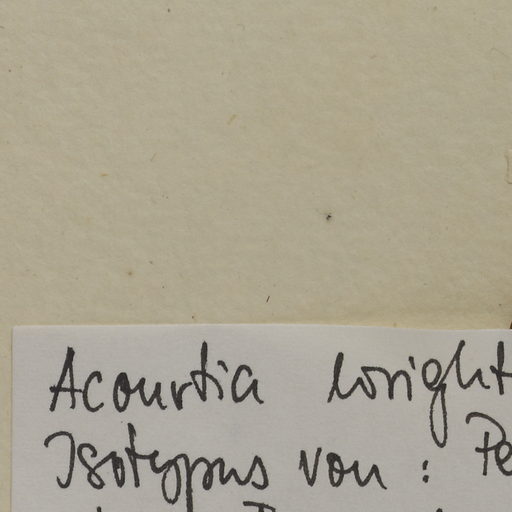 Acourtia wright
Isotypus von : Pe